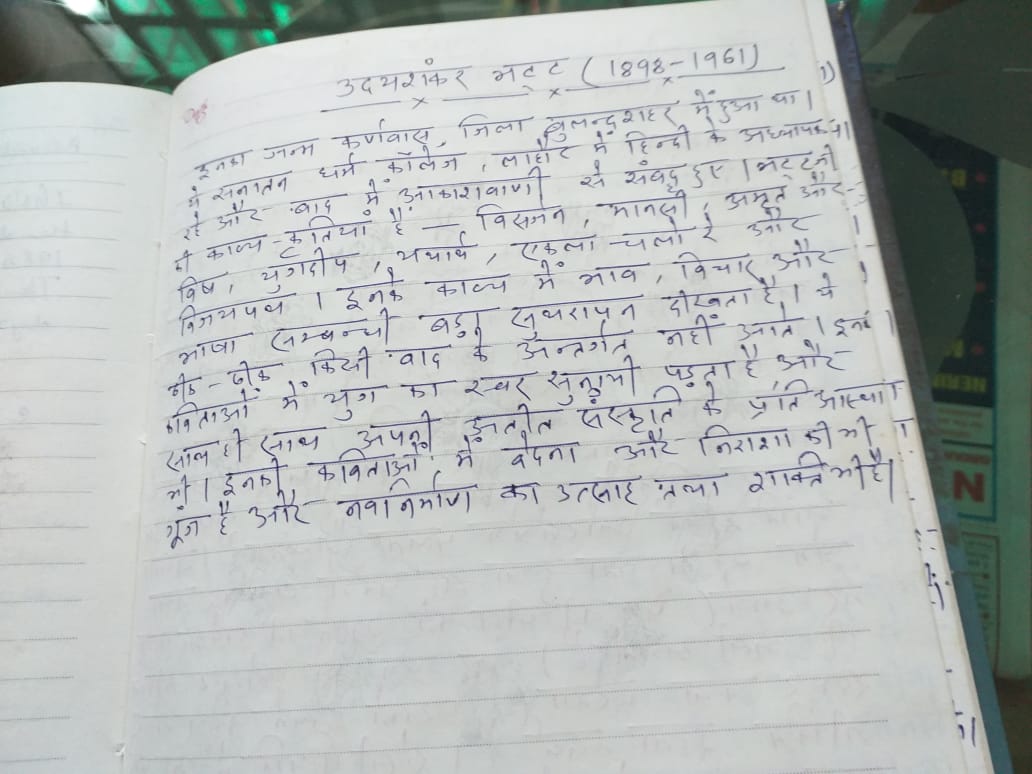 उदयशंकर भट्ट (1898-1961)
इनका जन्म कर्णवास, जिला बुलन्दशहर में हुआ था।
ये सनातन धर्म कॉलेज, लाहौर में हिन्दी के अध्यापक
रहे और बाद में आकाशवाणी से संबद्ध हुए। भट्टजी
की काव्य-कृतियां हैं — विसर्जन, मानसी, अमृत और
विष, युगदीप, यथार्थ, एकला चलो रे और
विजयपथ। इनके काव्य में भाव, विचार और
भाषा सम्बन्धी बड़ा सुथरापन दीखता है। ये
ठीक-ठीक किसी वाद के अन्तर्गत नहीं आते। इनकी
कविताओं में युग का स्वर सुनायी पड़ता है और
साथ ही साथ अपनी अतीत संस्कृति के प्रति आस्था
भी। इनकी कविताओं में वेदना और निराशा की भी
गूंज है और नवनिर्माण का उत्साह तथा शक्ति भी है।